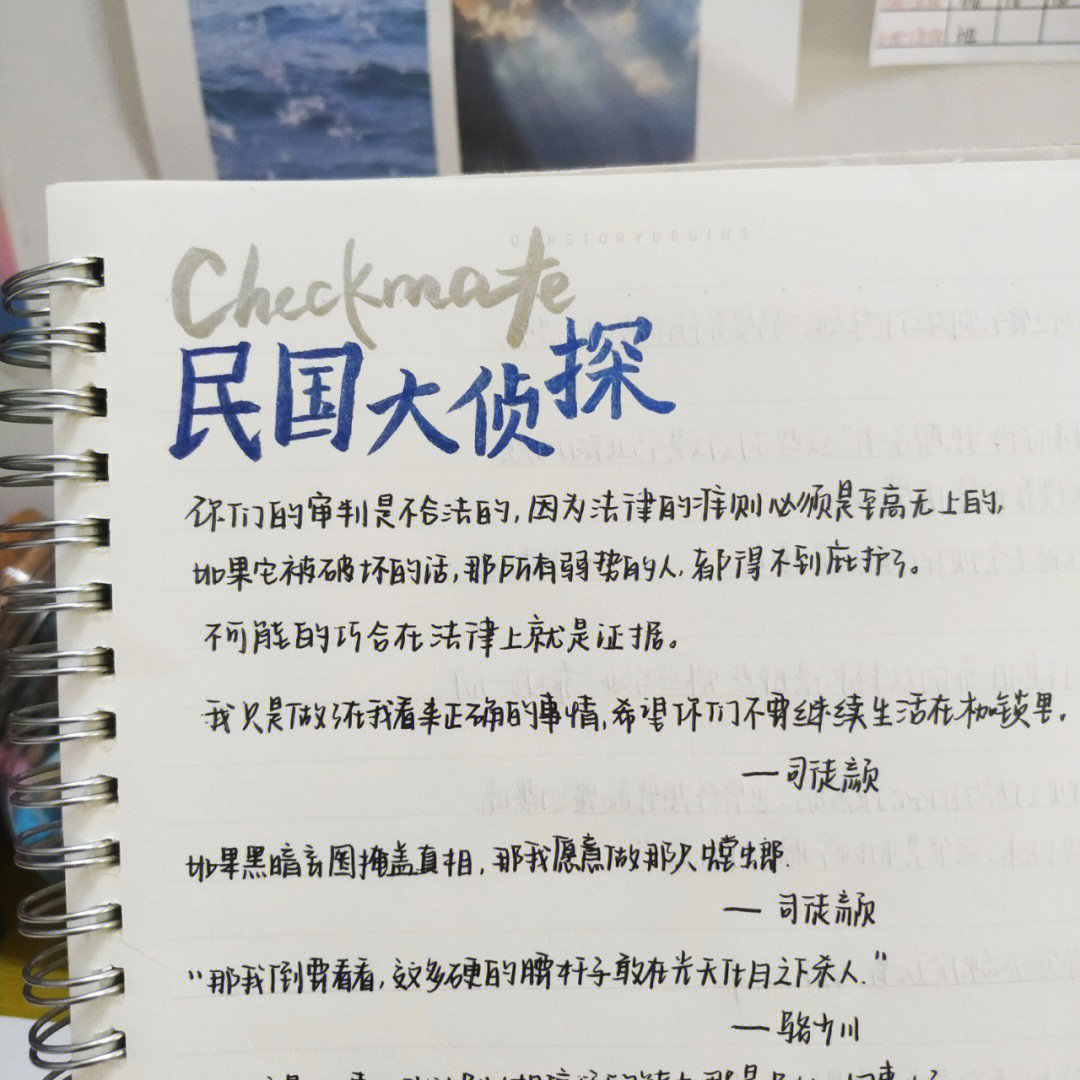 OURSTORYBEGINS
Checkmate
民国大侦探
你们的审判是不合法的,因为法律的准则必须是至高无上的,
如果它被破坏的话,那所有弱势的人,都得不到庇护了。
不可能的巧合在法律上就是证据。
我只是做了在我看来正确的事情,希望你们不要继续生活在枷锁里。
—司徒颜
如果黑暗意图掩盖真相,那我愿意做那只螳螂.
— 司徒颜
“那我倒要看看,多硬的腰杆子敢在光天化日之下杀人.”
—骆少川